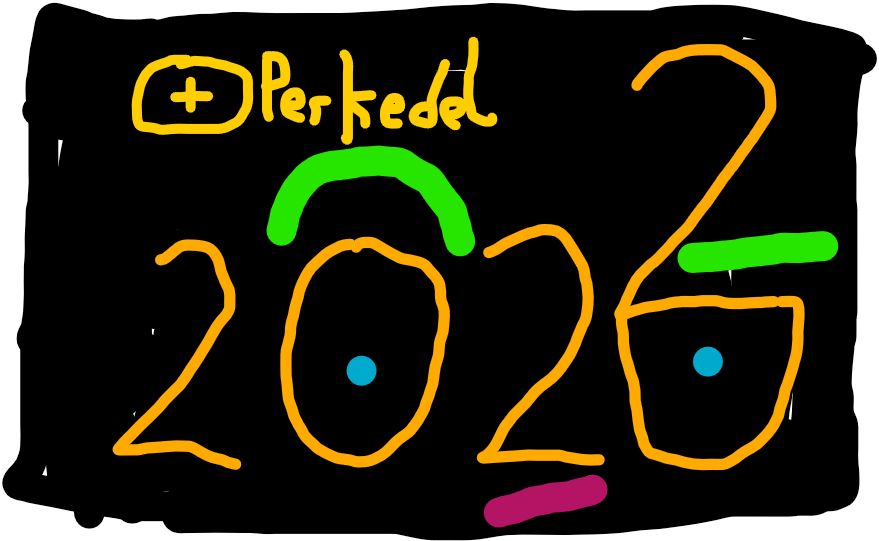 + Perkedel
2026